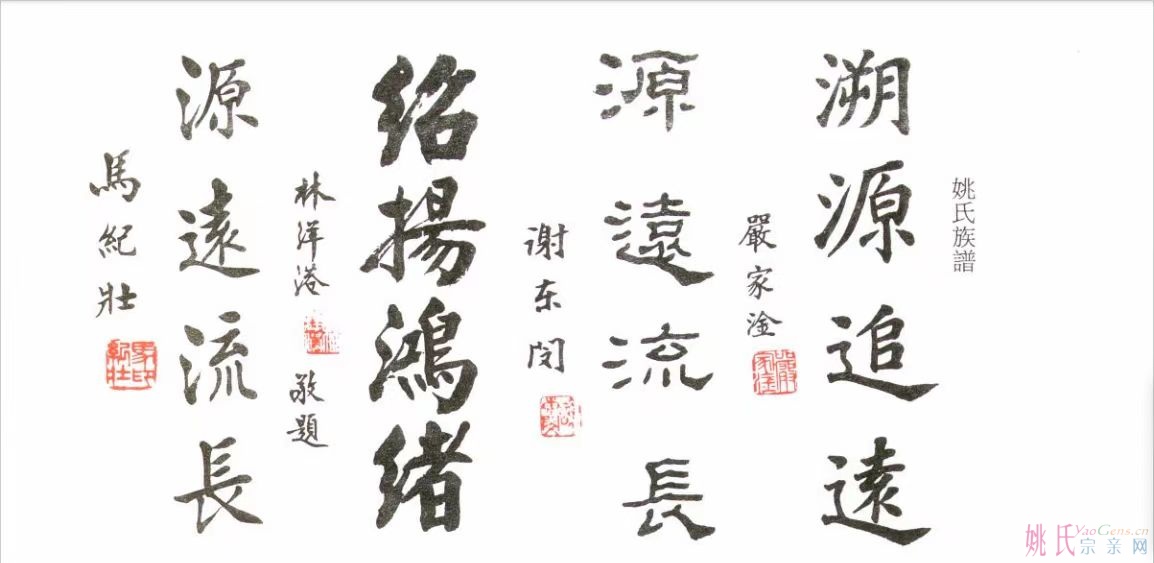 姚氏族譜
溯源追遠
嚴家淦
嚴家淦
源遠流長
谢东闵
紹揚鴻緒
林洋港
敬題
源遠流長
馬紀壯
馬紀壯印
姚氏宗亲网
YaoGens.cn